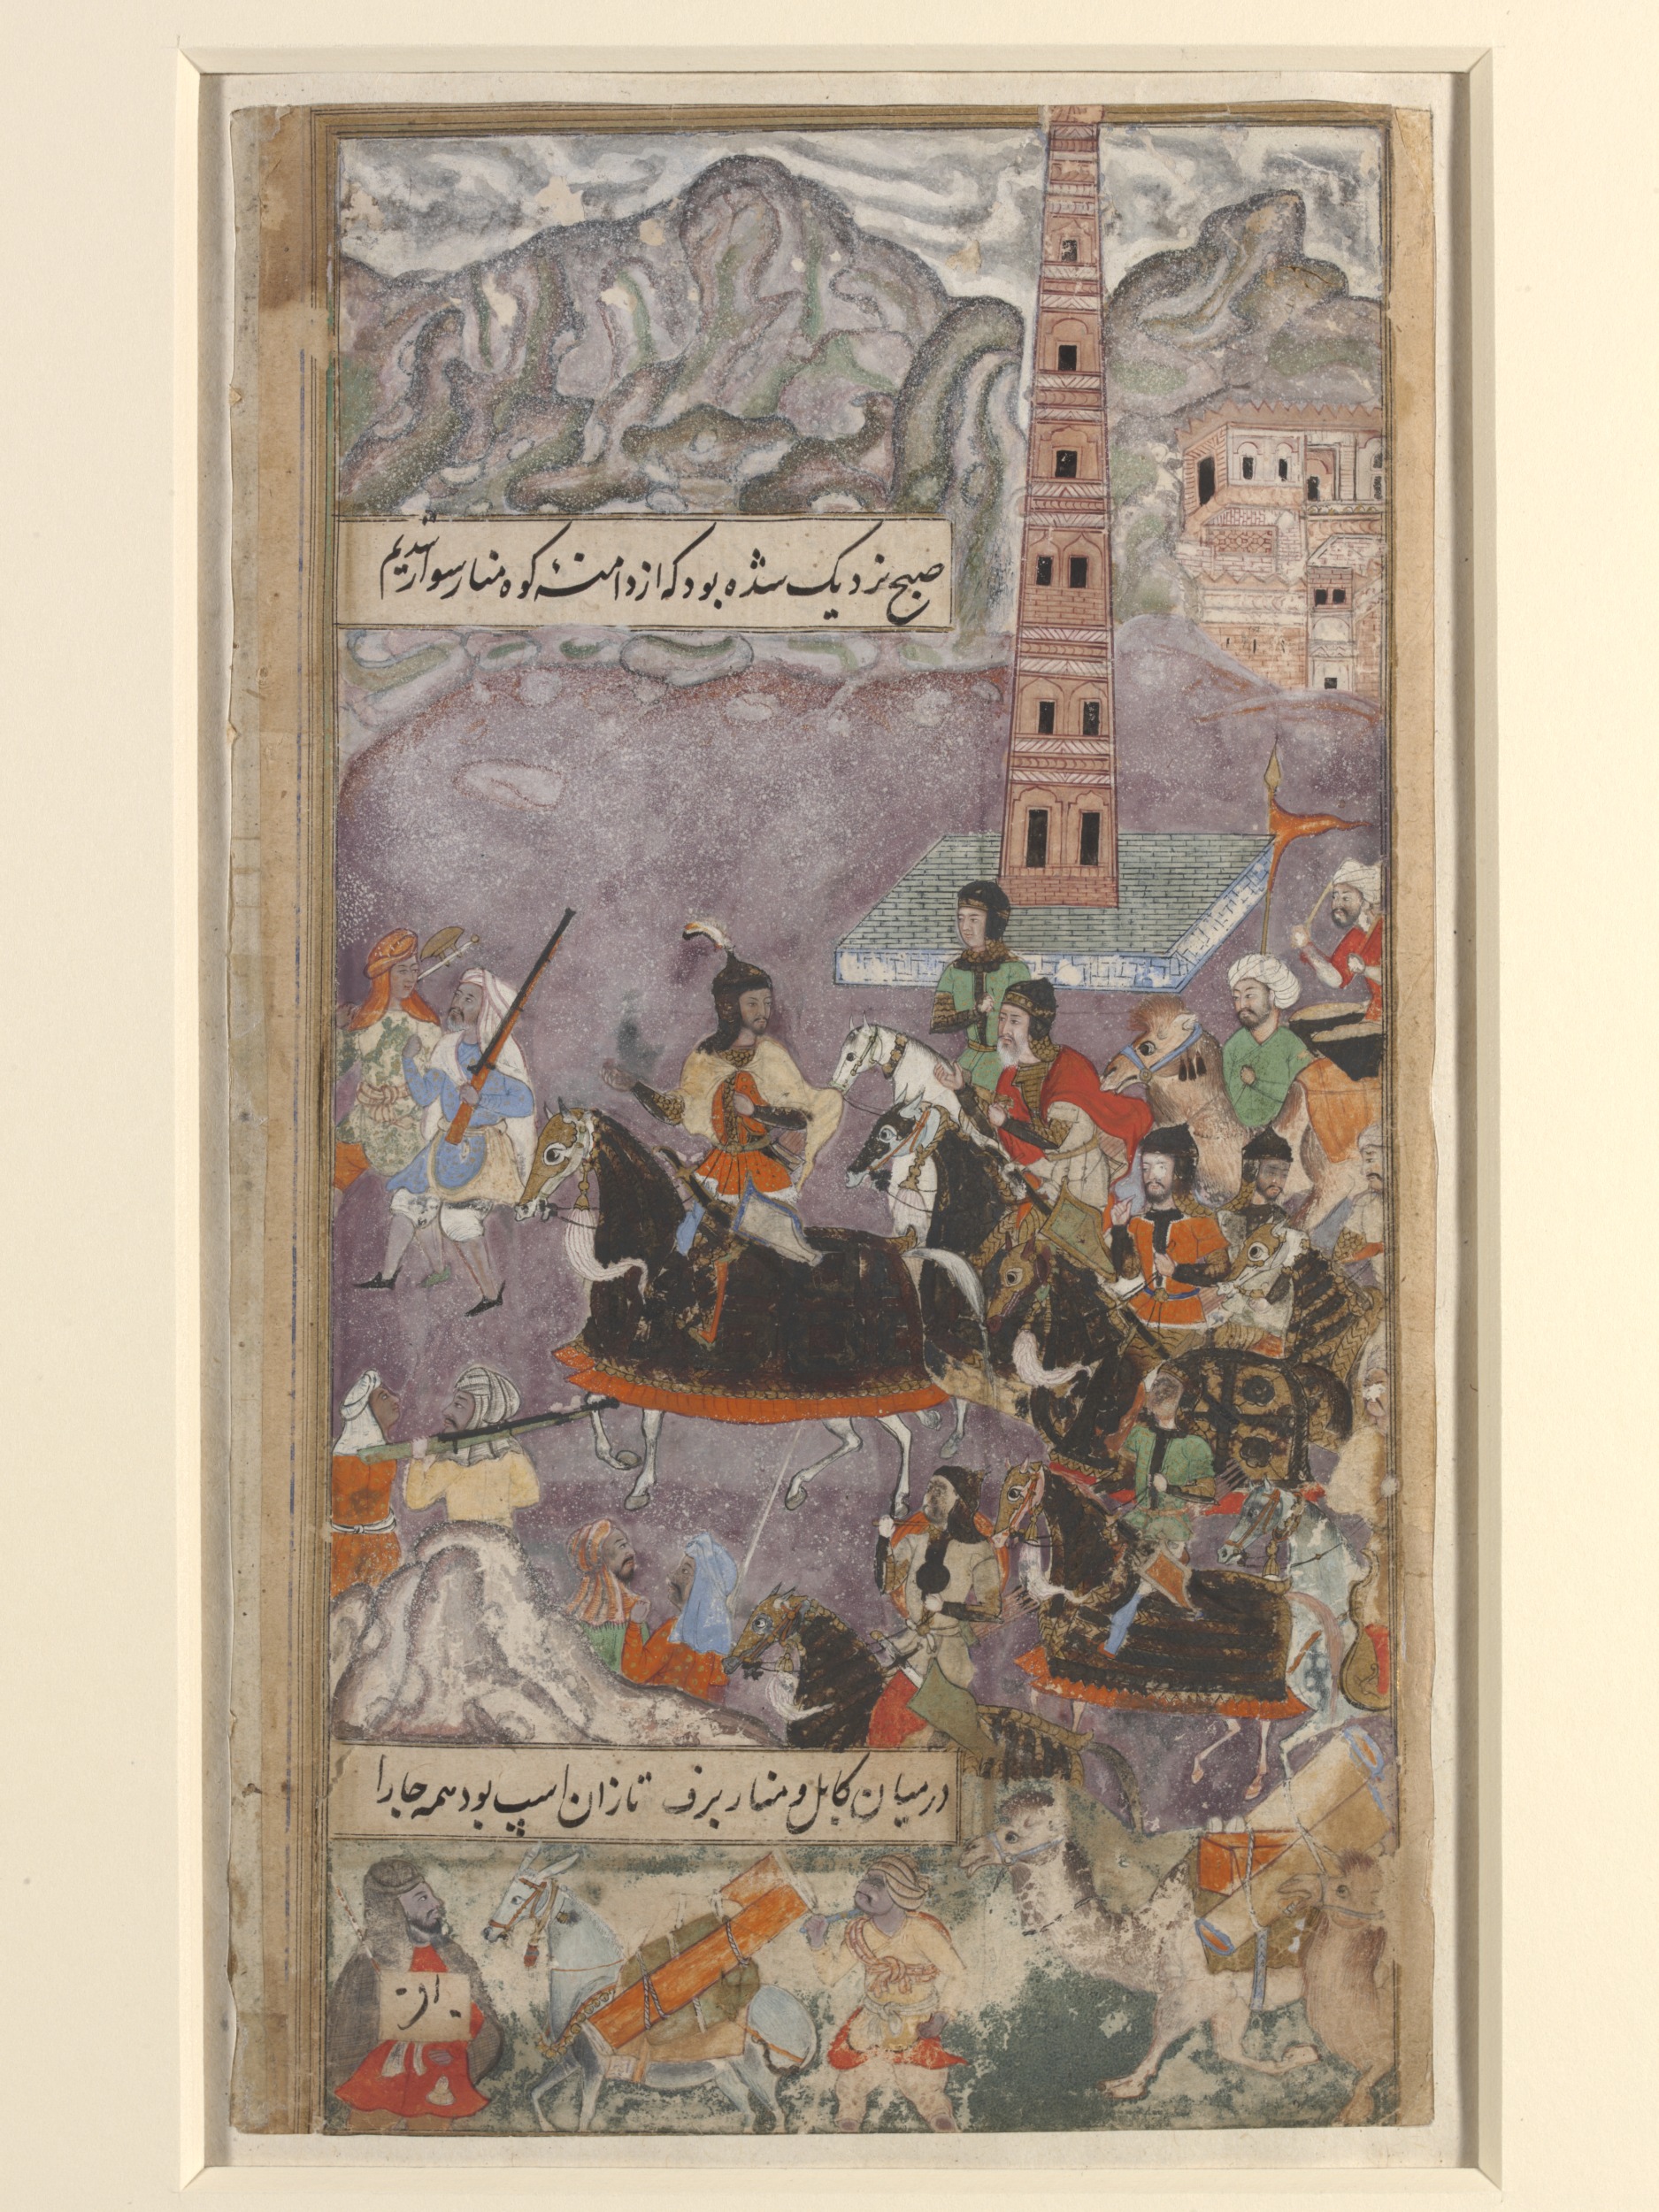 صبح نزدیک شده بود که از دامنهٔ کوه منار سوار شدیم
در میان کابل و منار برف تا زان اسپ بود همه جا را